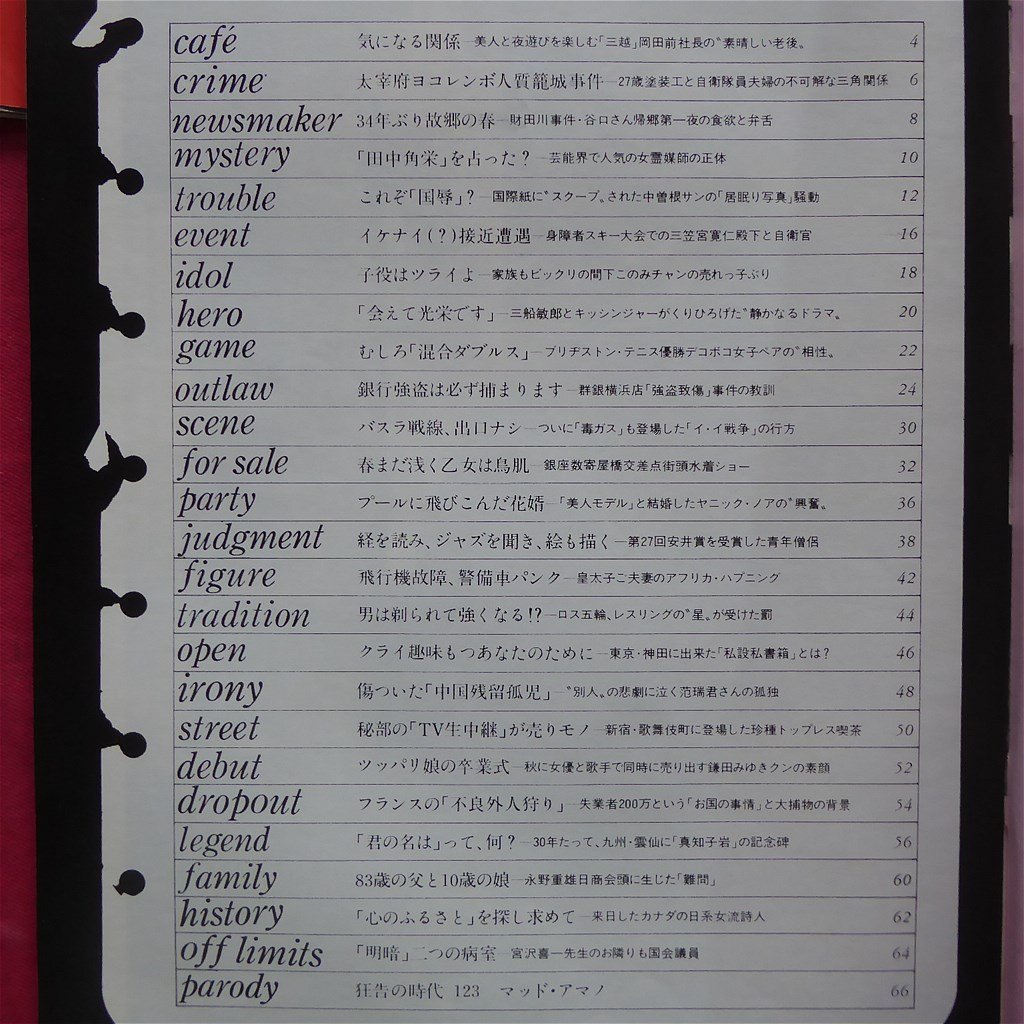 café 気になる関係―美人と夜遊びを楽しむ「三越」岡田前社長の〝素晴しい老後〟 4
crime 太宰府ヨコレンボ人質籠城事件―27歳塗装工と自衛隊員夫婦の不可解な三角関係 6
newsmaker 34年ぶり故郷の春―財田川事件・谷口さん帰郷第一夜の食欲と弁舌 8
mystery 「田中角栄」を占った?―芸能界で人気の女霊媒師の正体 10
trouble これぞ「国辱」?―国際紙に〝スクープ〟された中曽根サンの「居眠り写真」騒動 12
event イケナイ(?)接近遭遇―身障者スキー大会での三笠宮寛仁殿下と自衛官 16
idol 子役はツライよ―家族もビックリの間下このみチャンの売れっ子ぶり 18
hero 「会えて光栄です」―三船敏郎とキッシンジャーがくりひろげた〝静かなるドラマ〟 20
game むしろ「混合ダブルス」―ブリヂストン・テニス優勝デコボコ女子ペアの〝相性〟 22
outlaw 銀行強盗は必ず捕まります―群銀横浜店「強盗致傷」事件の教訓 24
scene バスラ戦線、出口ナシ―ついに「毒ガス」も登場した「イ・イ戦争」の行方 30
for sale 春まだ浅く乙女は鳥肌―銀座数寄屋橋交差点街頭水着ショー 32
party プールに飛びこんだ花婿―「美人モデル」と結婚したヤニック・ノアの〝興奮〟 36
judgment 経を読み、ジャズを聞き、絵も描く―第27回安井賞を受賞した青年僧侶 38
figure 飛行機故障、警備車パンク―皇太子ご夫妻のアフリカ・ハプニング 42
tradition 男は剃られて強くなる!?―ロス五輪、レスリングの〝星〟が受けた罰 44
open クライ趣味もつあなたのために―東京・神田に出来た「私設私書箱」とは? 46
irony 傷ついた「中国残留孤児」―〝別人〟の悲劇に泣く范瑞君さんの孤独 48
street 秘部の「TV生中継」が売りモノ―新宿・歌舞伎町に登場した珍種トップレス喫茶 50
debut ツッパリ娘の卒業式―秋に女優と歌手で同時に売り出す鎌田みゆきクンの素顔 52
dropout フランスの「不良外人狩り」―失業者200万という「お国の事情」と大捕物の背景 54
legend 「君の名は」って、何?―30年たって、九州・雲仙に「真知子岩」の記念碑 56
family 83歳の父と10歳の娘―永野重雄日商会頭に生じた「難問」 60
history 「心のふるさと」を探し求めて―来日したカナダの日系女流詩人 62
off limits 「明暗」二つの病室―宮沢喜一先生のお隣りも国会議員 64
parody 狂告の時代 123 マッド・アマノ 66